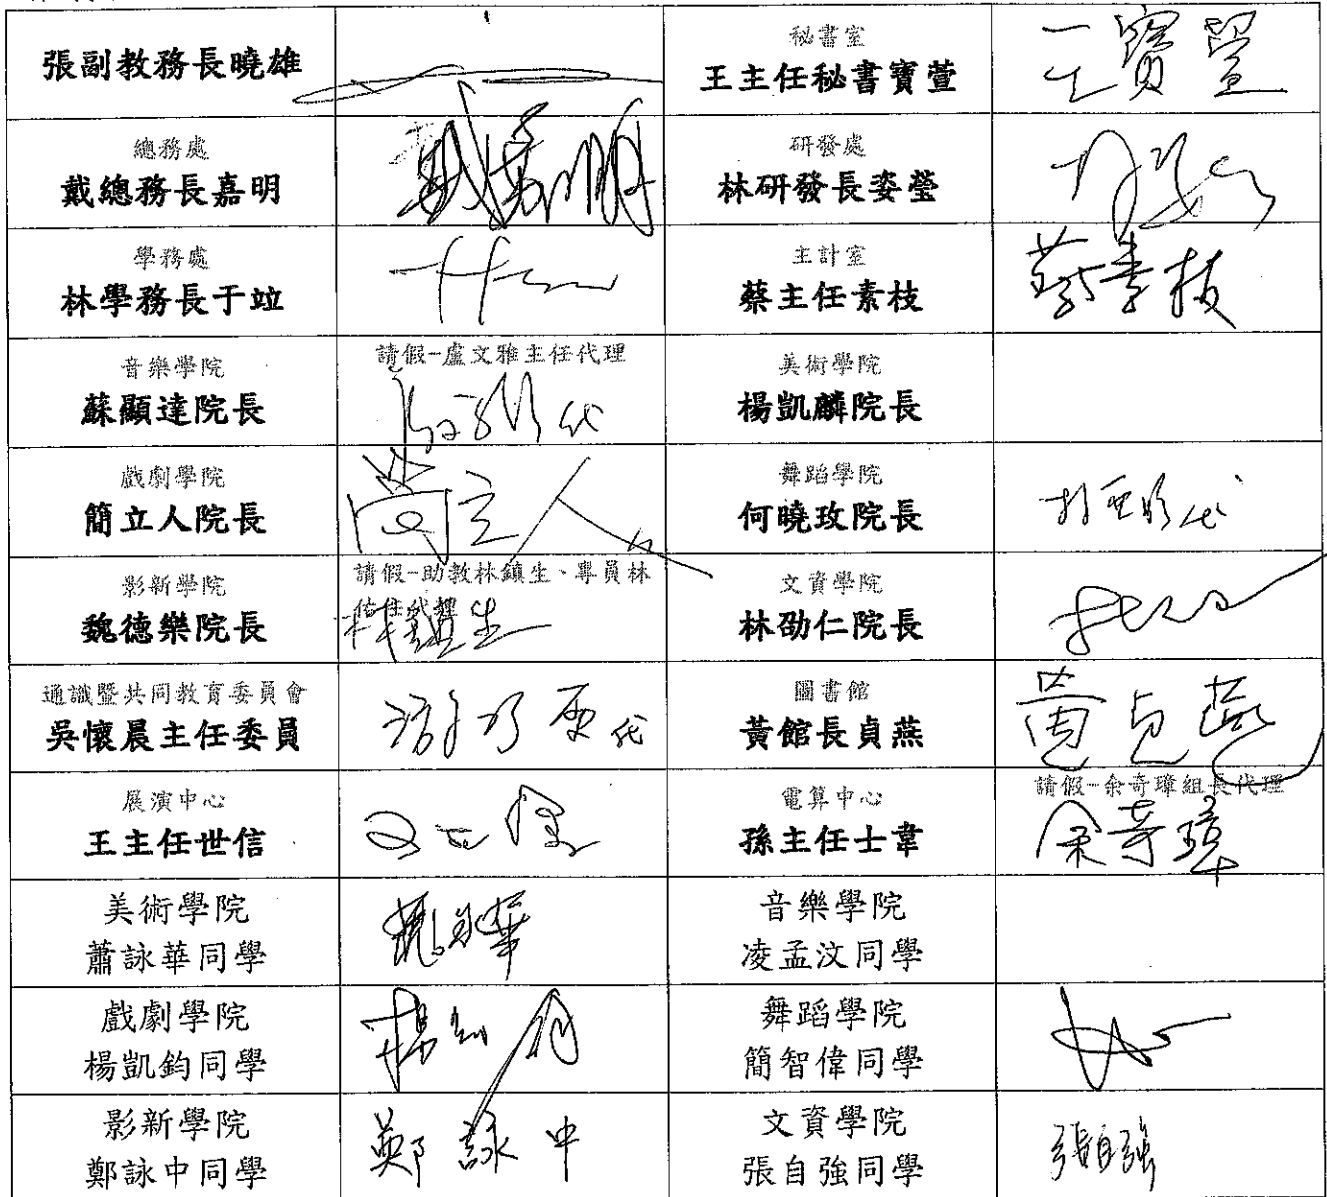 張副教務長曉雄
秘書室
王主任秘書寶萱
王寶萱
總務處
戴總務長嘉明
戴嘉明
研發處
林研發長姿瑩
學務處
林學務長于竝
主計室
蔡主任素枝
蔡素枝
音樂學院
蘇顯達院長
請假-盧文雅主任代理
代
美術學院
楊凱麟院長
戲劇學院
簡立人院長
簡立人
舞蹈學院
何曉玫院長
代
影新學院
魏德樂院長
請假-助教林鎮生、專員林
林鎮生
文資學院
林劭仁院長
通識暨共同教育委員會
吳懷晨主任委員
代
圖書館
黃館長貞燕
黃貞燕
展演中心
王主任世信
王世信
電算中心
孫主任士韋
請假-余奇璋組長代理
余奇璋
美術學院
蕭詠華同學
音樂學院
凌孟汶同學
戲劇學院
楊凱鈞同學
舞蹈學院
簡智偉同學
影新學院
鄭詠中同學
鄭詠中
文資學院
張自強同學
張自強